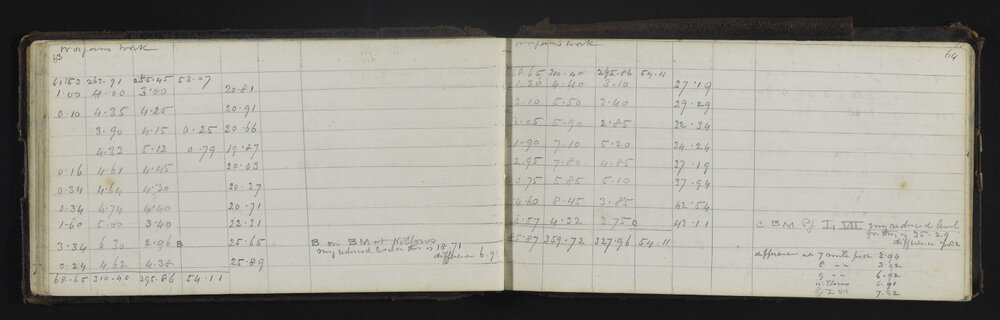 63
Morgans Work
61.53 263.91 285.45 53.07
1.00 4.00 3.00 20.81
0.10 4.35 4.25 20.91
3.90 4.15 0.25 20.66
4.33 5.12 0.79 19.87
0.16 4.61 4.45 20.03
0.34 4.64 4.30 20.37
0.34 4.74 4.40 20.71
1.60 5.00 3.40 22.31
3.34 6.30 2.96 B 25.65 B on BM at Willows
my reduced level on this is 18.71
difference 6.91
0.24 4.62 4.38 25.89
68.65 310.40 295.86 54.11
Morgans Work
64
68.65 310.40 295.86 54.11
1.30 4.40 3.10 27.19
2.10 5.50 3.40 29.29
3.05 5.90 2.85 32.34
1.90 7.10 5.20 34.24
2.95 7.80 4.85 37.19
0.75 5.85 5.10 37.94
4.60 8.45 3.85 42.54
0.57 4.32 3.75 C 43.11 C BM Pf I VII my reduced level
for this is 35.29
difference 7.82
85.87 359.72 327.96 54.11
difference at 7 mile post 3.94
8 " " 3.92
9 " " 6.92
Willows 6.91
Pf I VII 7.82